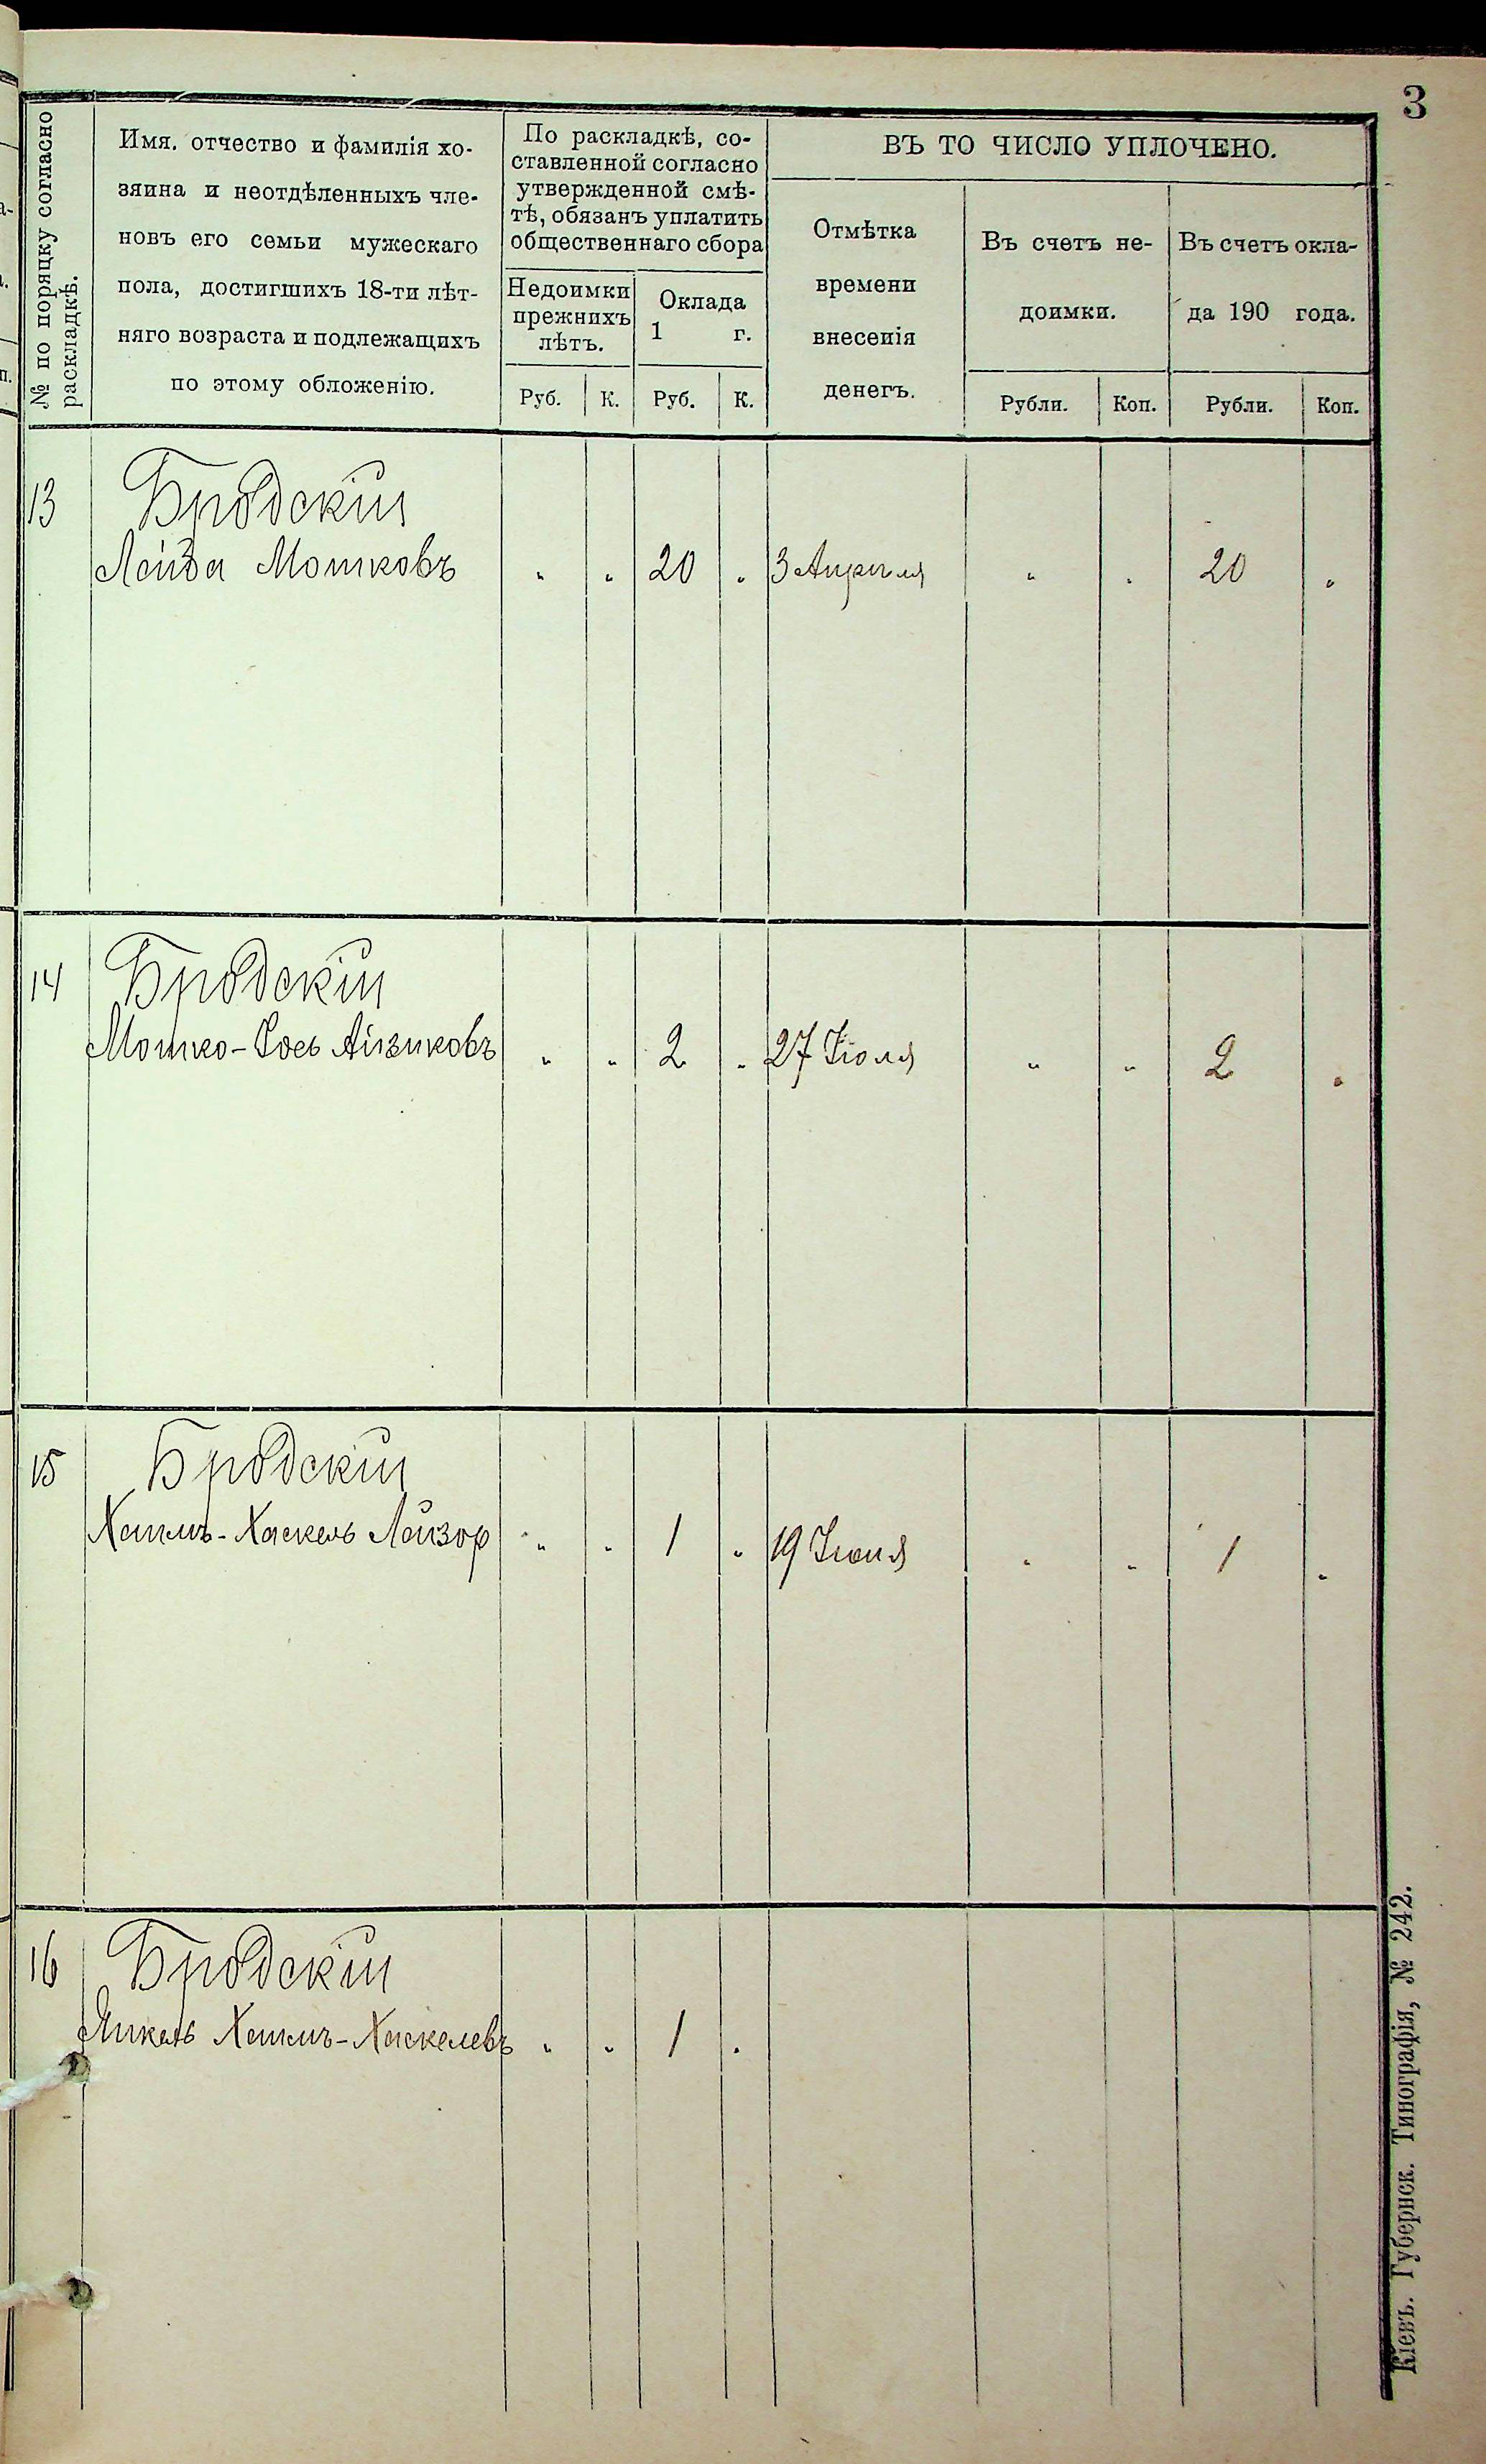 3
№ по порядку согласно
раскладкѣ.
Имя. отчество и фамилія хо-
зяина и неотдѣленныхъ чле-
новъ его семьи мужескаго
пола, достигшихъ 18-ти лѣт-
няго возраста и подлежащихъ
по этому обложенію.
По раскладкѣ, со-
ставленной согласно
утвержденной смѣ-
тѣ, обязанъ уплатить
общественнаго сбора
Недоимки
прежнихъ
лѣтъ.
Оклада
1 г.
Руб. К. Руб. К.
ВЪ ТО ЧИСЛО УПЛОЧЕНО.
Отмѣтка
времени
внесенія
денегъ.
Въ счетъ не-
доимки.
Въ счетъ окла-
да 190 года.
Рубли. Коп. Рубли. Коп.
13 Бродскій
Лейба Мошковъ " " 20 " 3 Апрѣля " " 20 "
14 Бродскій
Мошко-Іось Айзиковъ " " 2 " 27 Іюля " " 2 "
15 Бродскій
Хаимъ-Хаскель Лейзор " " 1 " 19 Іюня " " 1 "
16 Бродскій
Янкель Хаимъ-Хаскелевъ " " 1 "
Кіевъ. Губернск. Типографія, № 242.